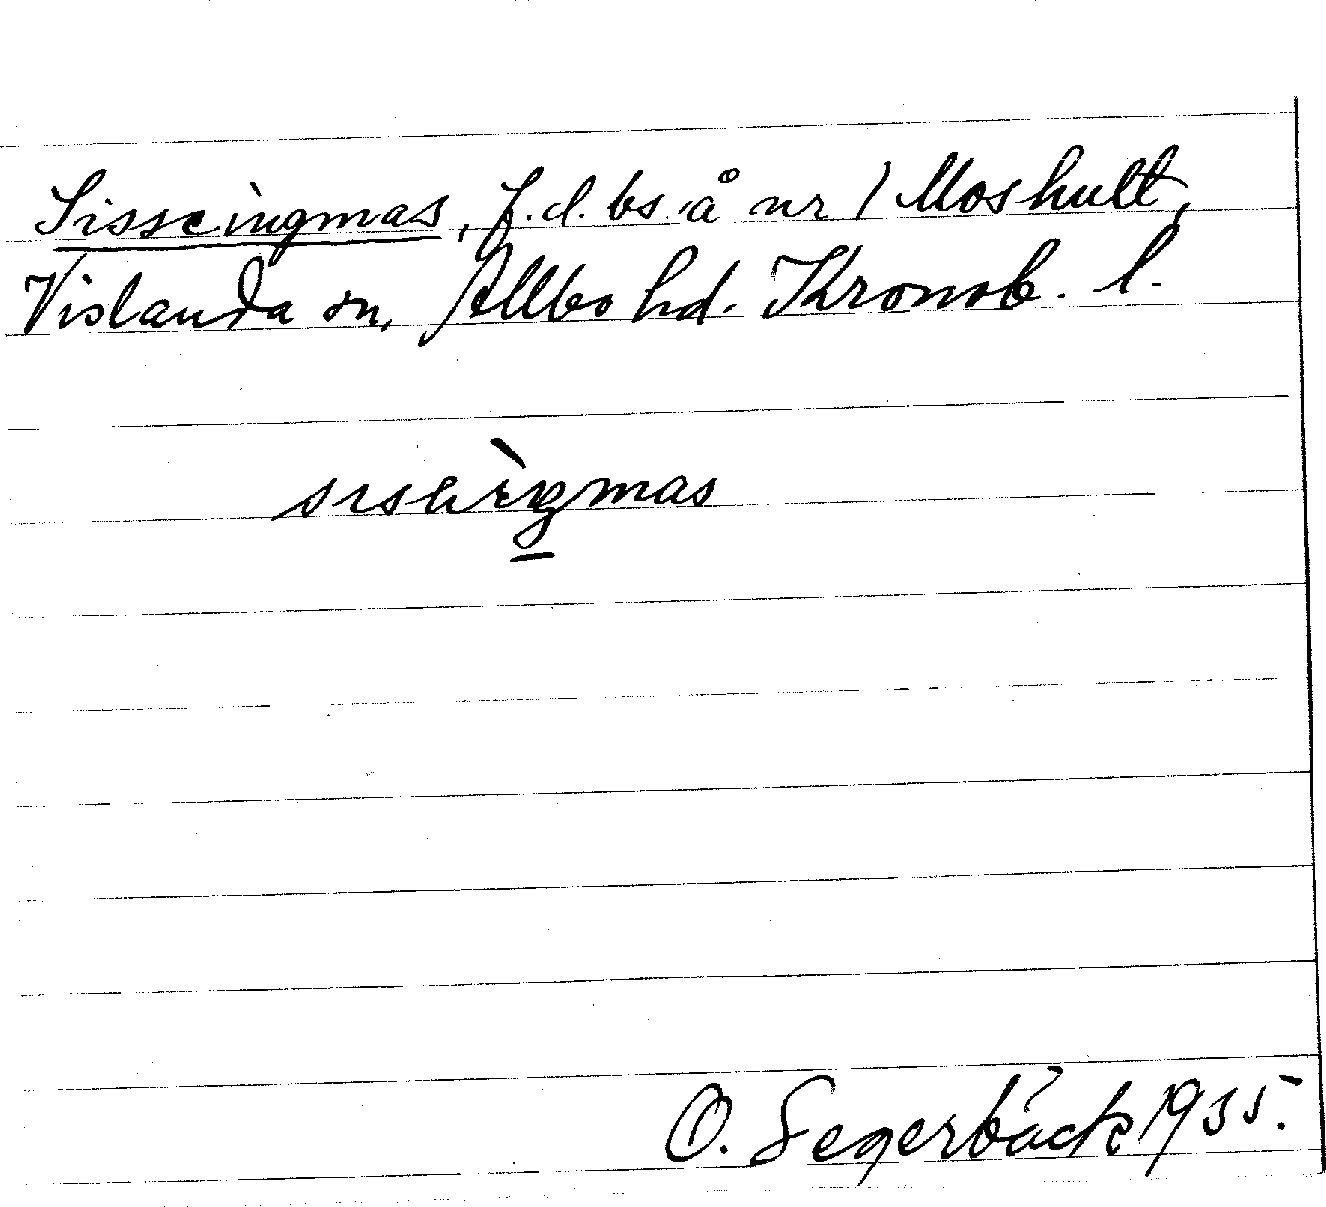 Sisseingmas, f.d. bs å nr 1 Moshult,
Vislanda sn, Allbo hd. Kronob. l.
O. Segerbäck 1935.